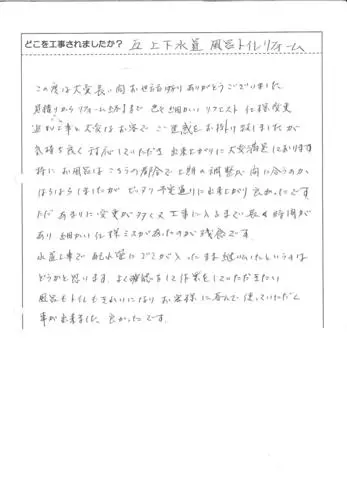 どこを工事されましたか? 上下水道 風呂トイレリフォーム
この度は大変長い間お世話になりありがとうございました
見積りからリフォーム終了まで 色々細かい リクエスト 仕様変更
追加工事と大変なお客で ご迷惑をお掛け致しましたが
気持ち良く対応していただき 出来上がりに大変満足しております
特に お風呂は こちらの都合で 工期の調整が 間に合うのか
はらはらしましたが ピッタリ予定通りに出来上がり良かったです
ただあまりに変更が多くて 工事に入るまで 長く時間が
あり 細かい仕様ミスがあったのが残念です
水道工事で 配水管にゴミが入ったまま継いだというのは
どうかと思います よく確認をして作業をしていただきたい
風呂もトイレもきれいになり お客様に喜んで使っていただく
事が出来ました 良かったです。